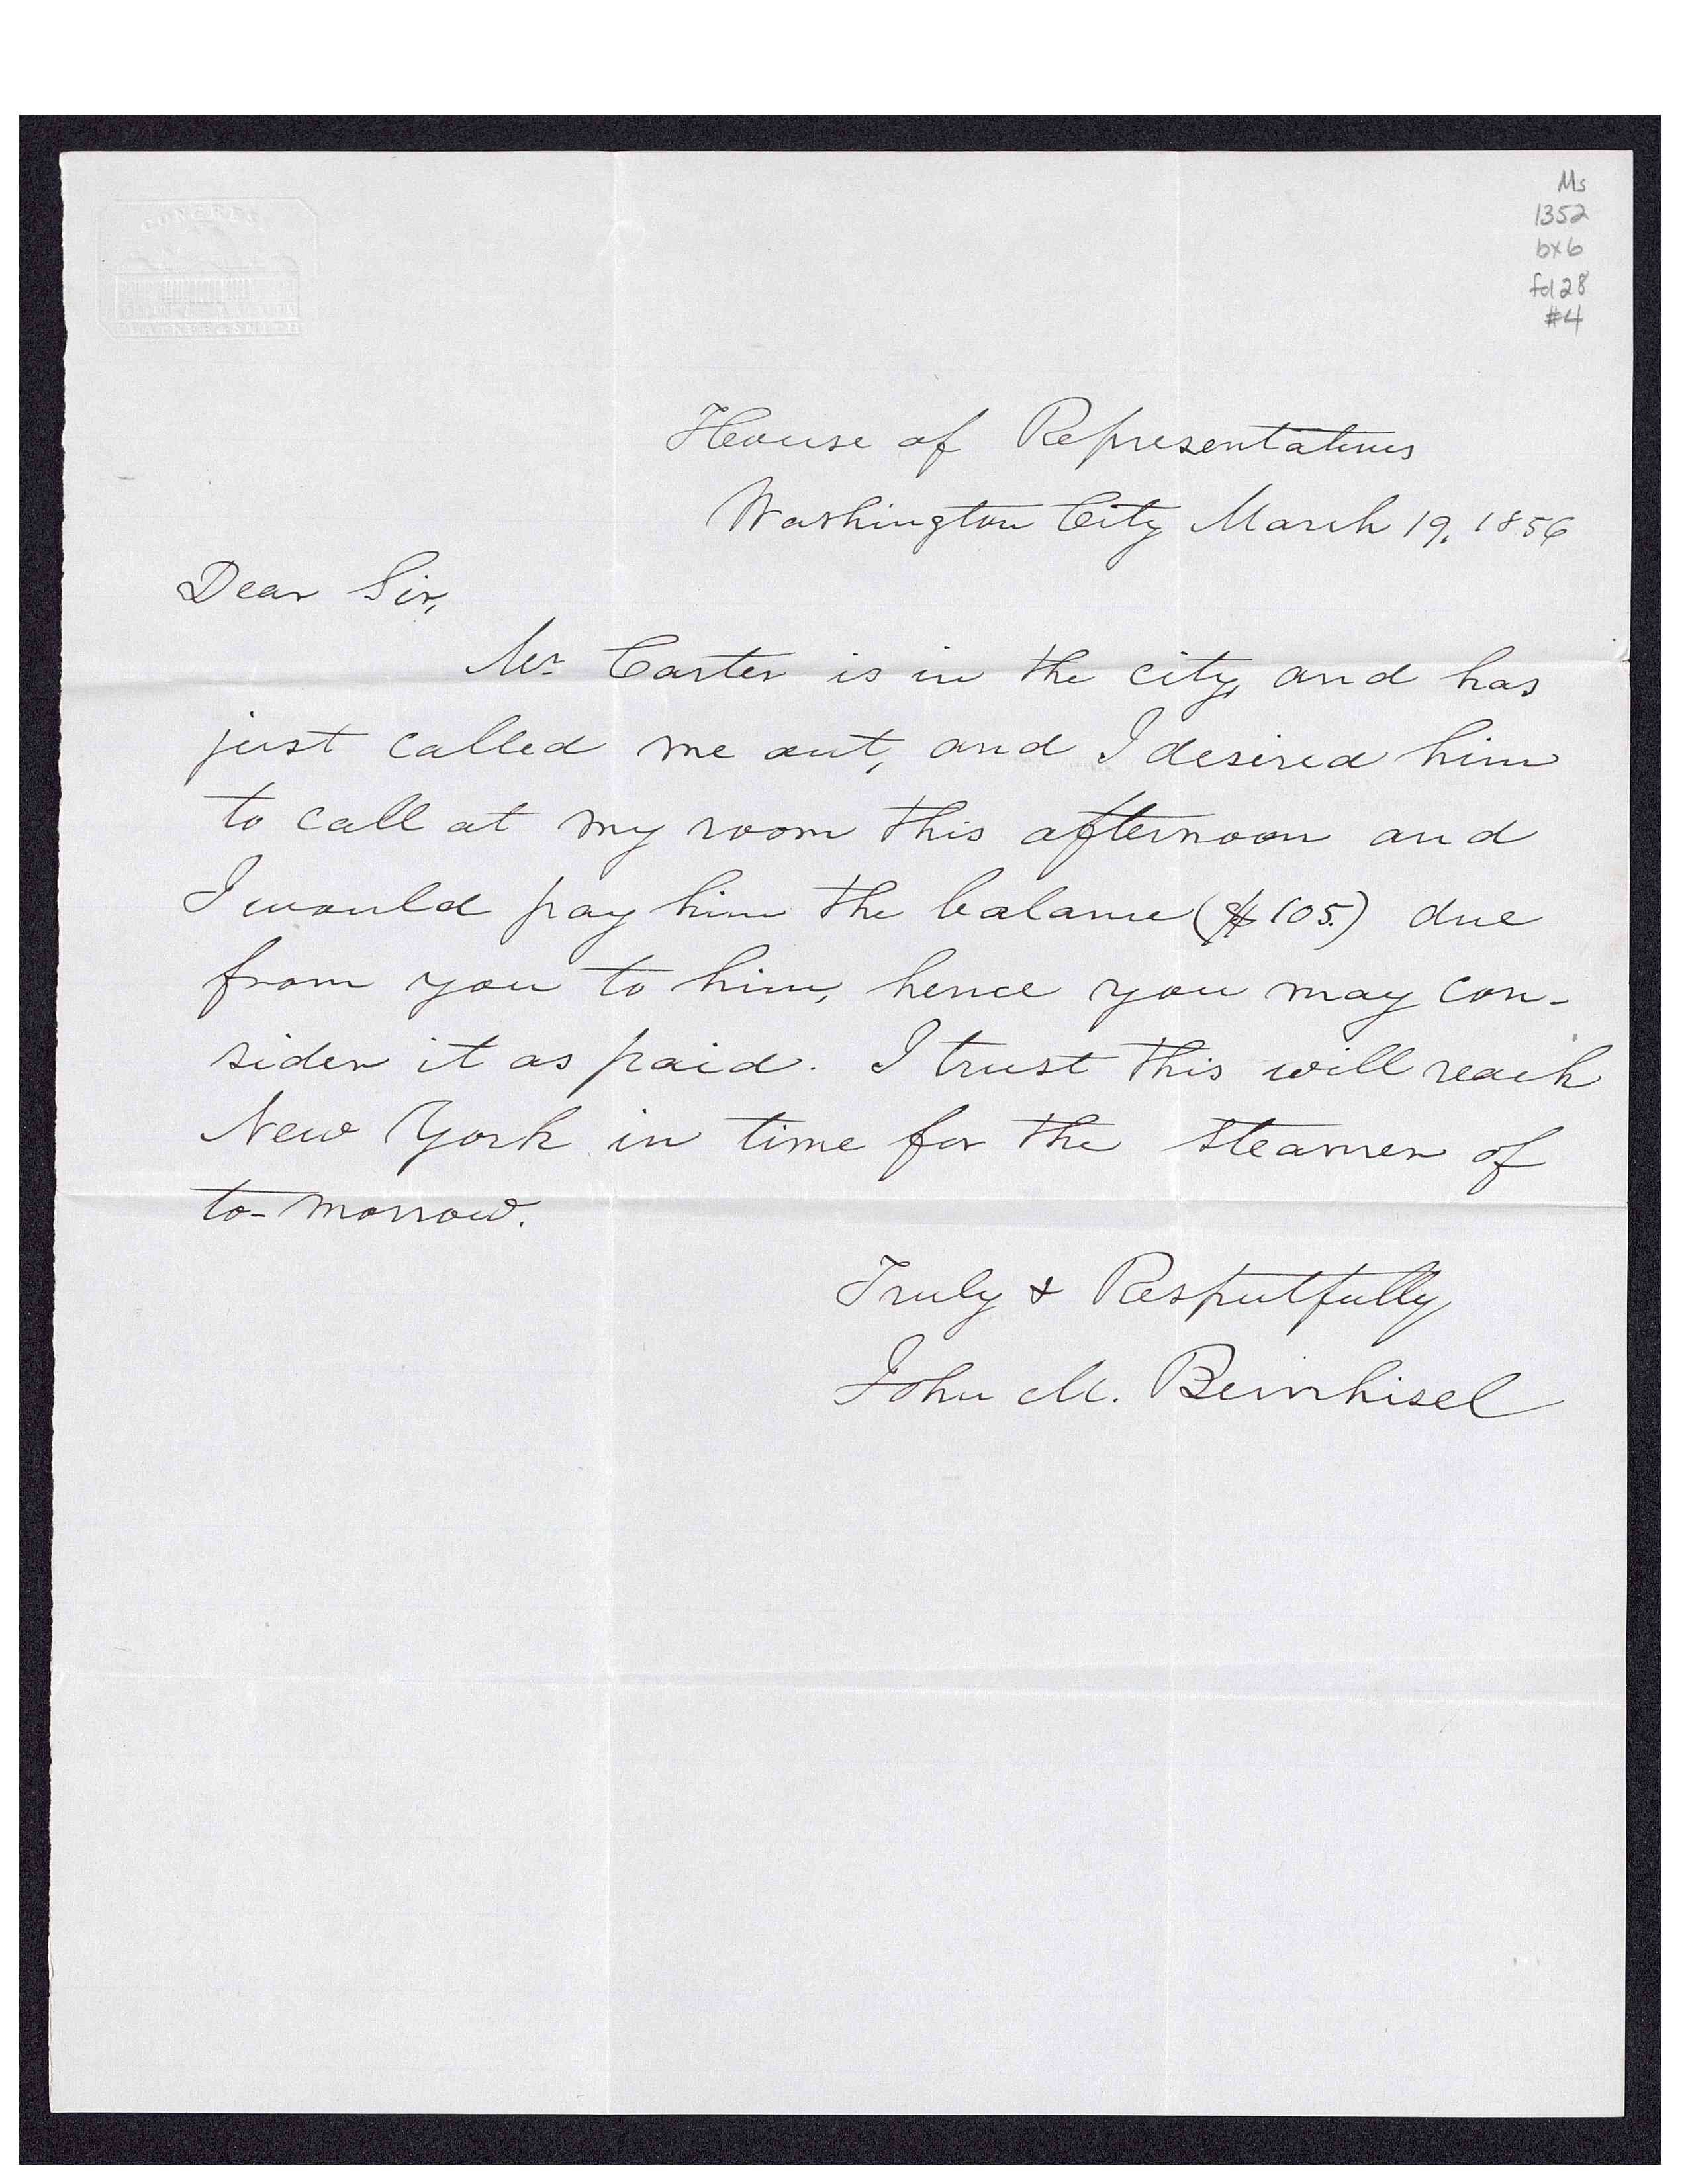 CONGRESS
& SMITH
Ms
1352
bx 6
fd 28
#4
House of Representatives
Washington City March 19, 1856
Dear Sir,
Mr. Carter is in the city, and has
just called me out, and I desired him
to call at my room this afternoon and
I would pay him the balance ($105.) due
from you to him, hence you may con-
sider it as paid. I trust this will reach
New York in time for the steamer of
to-morrow.
Truly & Respectfully
John M. Bernhisel